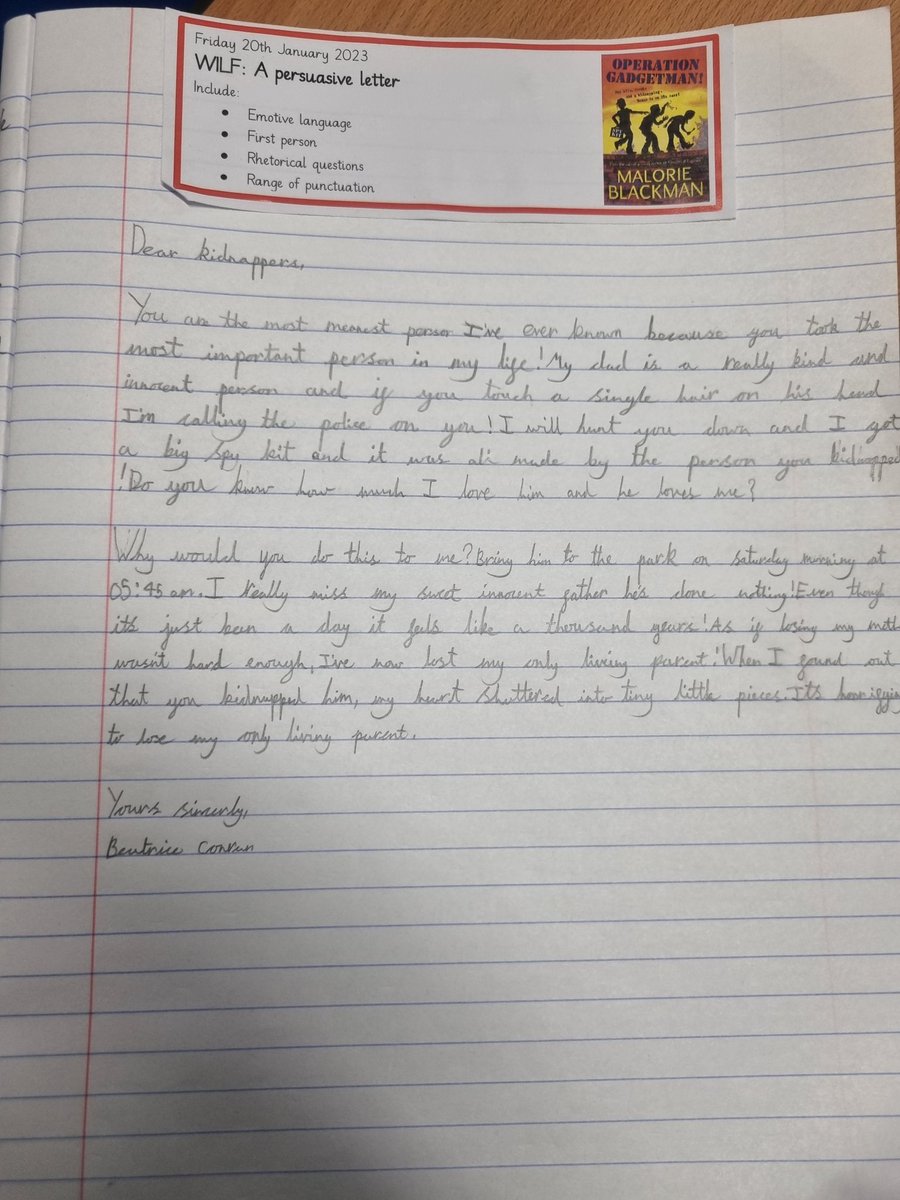 Friday 20th January 2023
WILF: A persuasive letter
Include:
• Emotive language
• First person
• Rhetorical questions
• Range of punctuation
OPERATION
GADGETMAN!
MALORIE
BLACKMAN
Dear kidnappers,
You are the most meanest person I've ever known because you took the
most important person in my life! My dad is a really kind and
innocent person and if you touch a single hair on his head
I'm calling the police on you! I will hunt you down and I got
a big spy kit and it was all made by the person you kidnapped
! Do you know how much I love him and he loves me?
Why would you do this to me? Bring him to the park on saturday morning at
05:45 am. I really miss my sweet innocent father he's done nothing! Even though
it's just been a day it feels like a thousand years! As if losing my moth
wasn't hard enough, I've now lost my only living parent! When I found out
that you kidnapped him, my heart shattered into tiny little pieces. It's
to lose my only living parent.
Yours sincerly,
Beatrice Conran